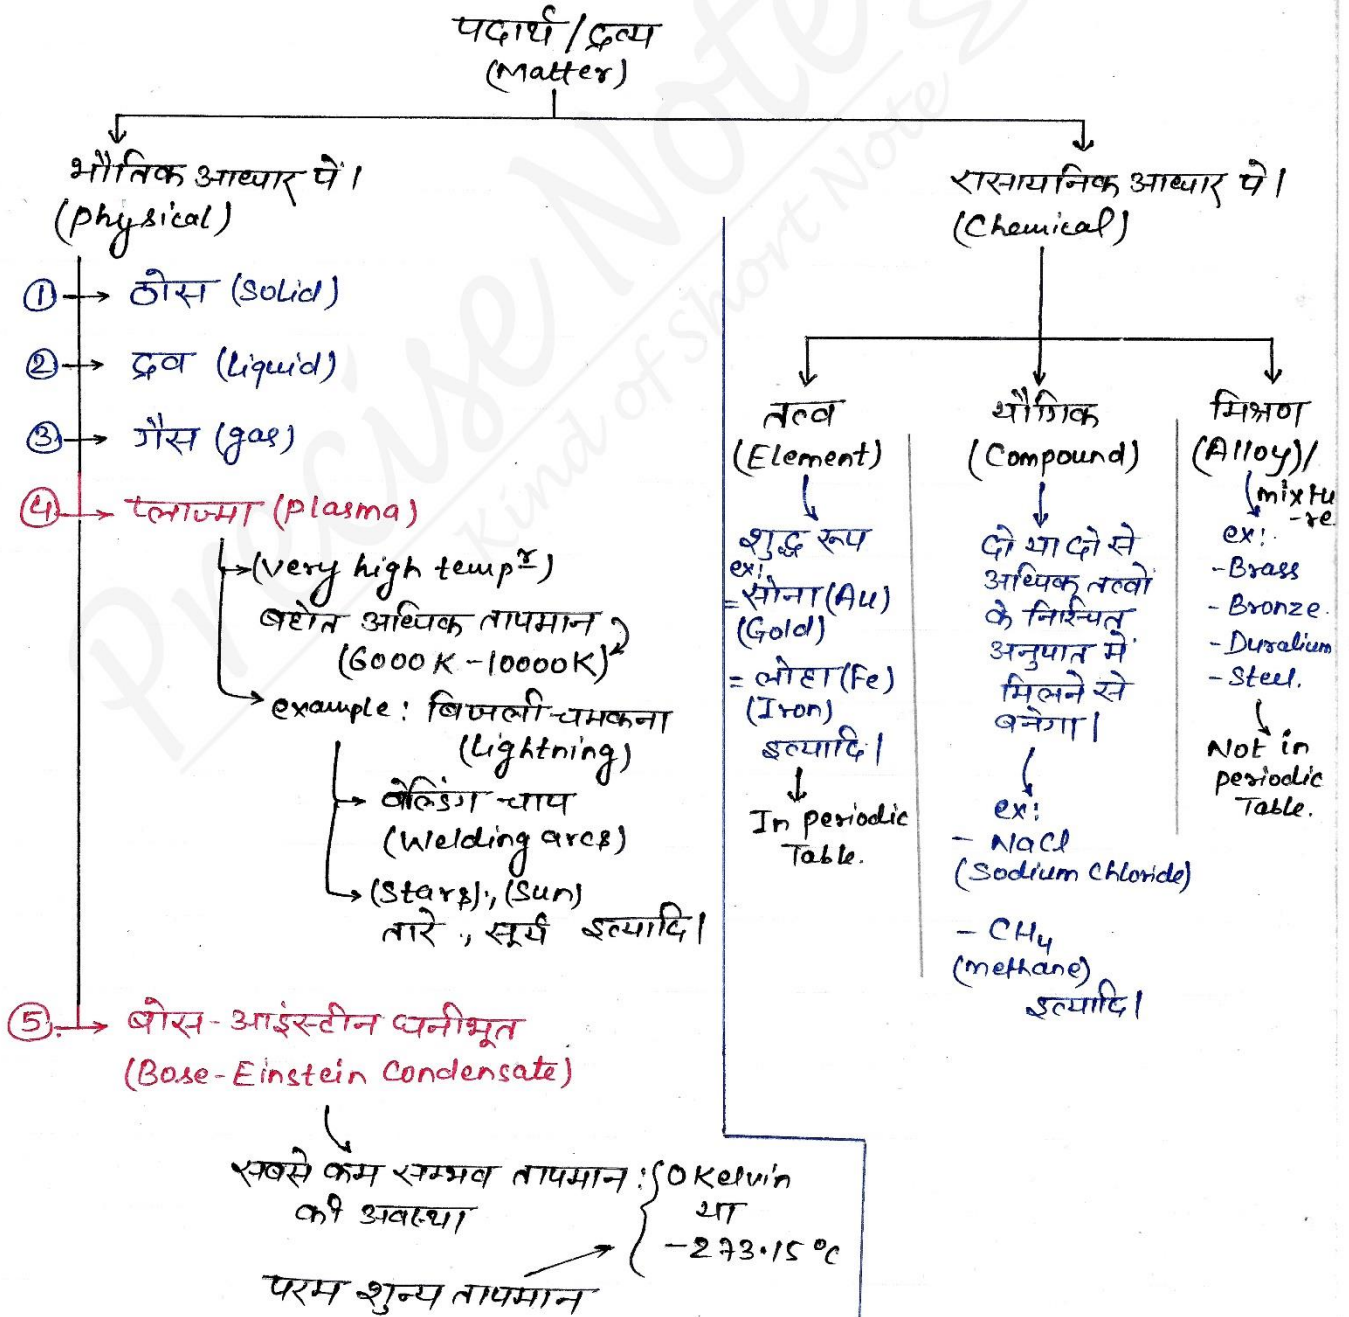 पदार्थ / द्रव्य
(Matter)
भौतिक आधार पे।
(Physical)
① → ठोस (Solid)
② → द्रव (Liquid)
③ → गैस (gas)
④ → प्लाज्मा (Plasma)
(very high tempʳ)
बहोत अधिक तापमान
(6000 K - 10000K)
example : बिजली चमकना
(Lightning)
वेल्डिंग चाप
(Welding arcs)
(Stars), (Sun)
तारे , सूर्य इत्यादि।
⑤ → बोस-आइंस्टीन घनीभूत
(Bose-Einstein Condensate)
सबसे कम सम्भव तापमान : { 0 Kelvin
की अवस्था
या
-273.15 °C
परम शुन्य तापमान
रासायनिक आधार पे।
(Chemical)
तत्व
(Element)
शुद्ध रूप
ex:
= सोना (Au)
(Gold)
= लोहा (Fe)
(Iron)
इत्यादि।
In Periodic
Table.
यौगिक
(Compound)
दो या दो से
अधिक तत्वों
के निश्चित
अनुपात में
मिलने से
बनेगा।
ex:
- NaCl
(Sodium Chloride)
- CH₄
(methane)
इत्यादि।
मिश्रण
(Alloy)/
mixtu
-re
ex:
- Brass
- Bronze.
- Duralium
- Steel.
Not in
periodic
Table.
Precise Notes
Kind of Short Note